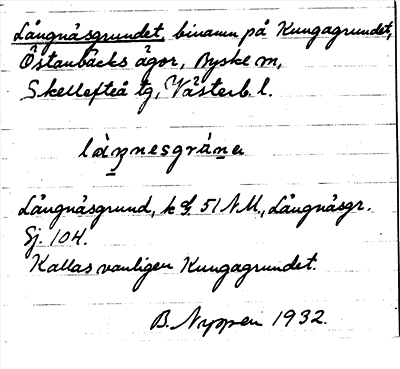 Långnäsgrundet, binamn på Kungagrundet,
Östanbäcks ägor, Byske sn,
Skellefteå tg, Västerb. l.
Långnäsgrund, k bl. 51 NM., Långnäsgr.
Sj. 104.
Kallas vanligen Kungagrundet.
B. Nyppen 1932.